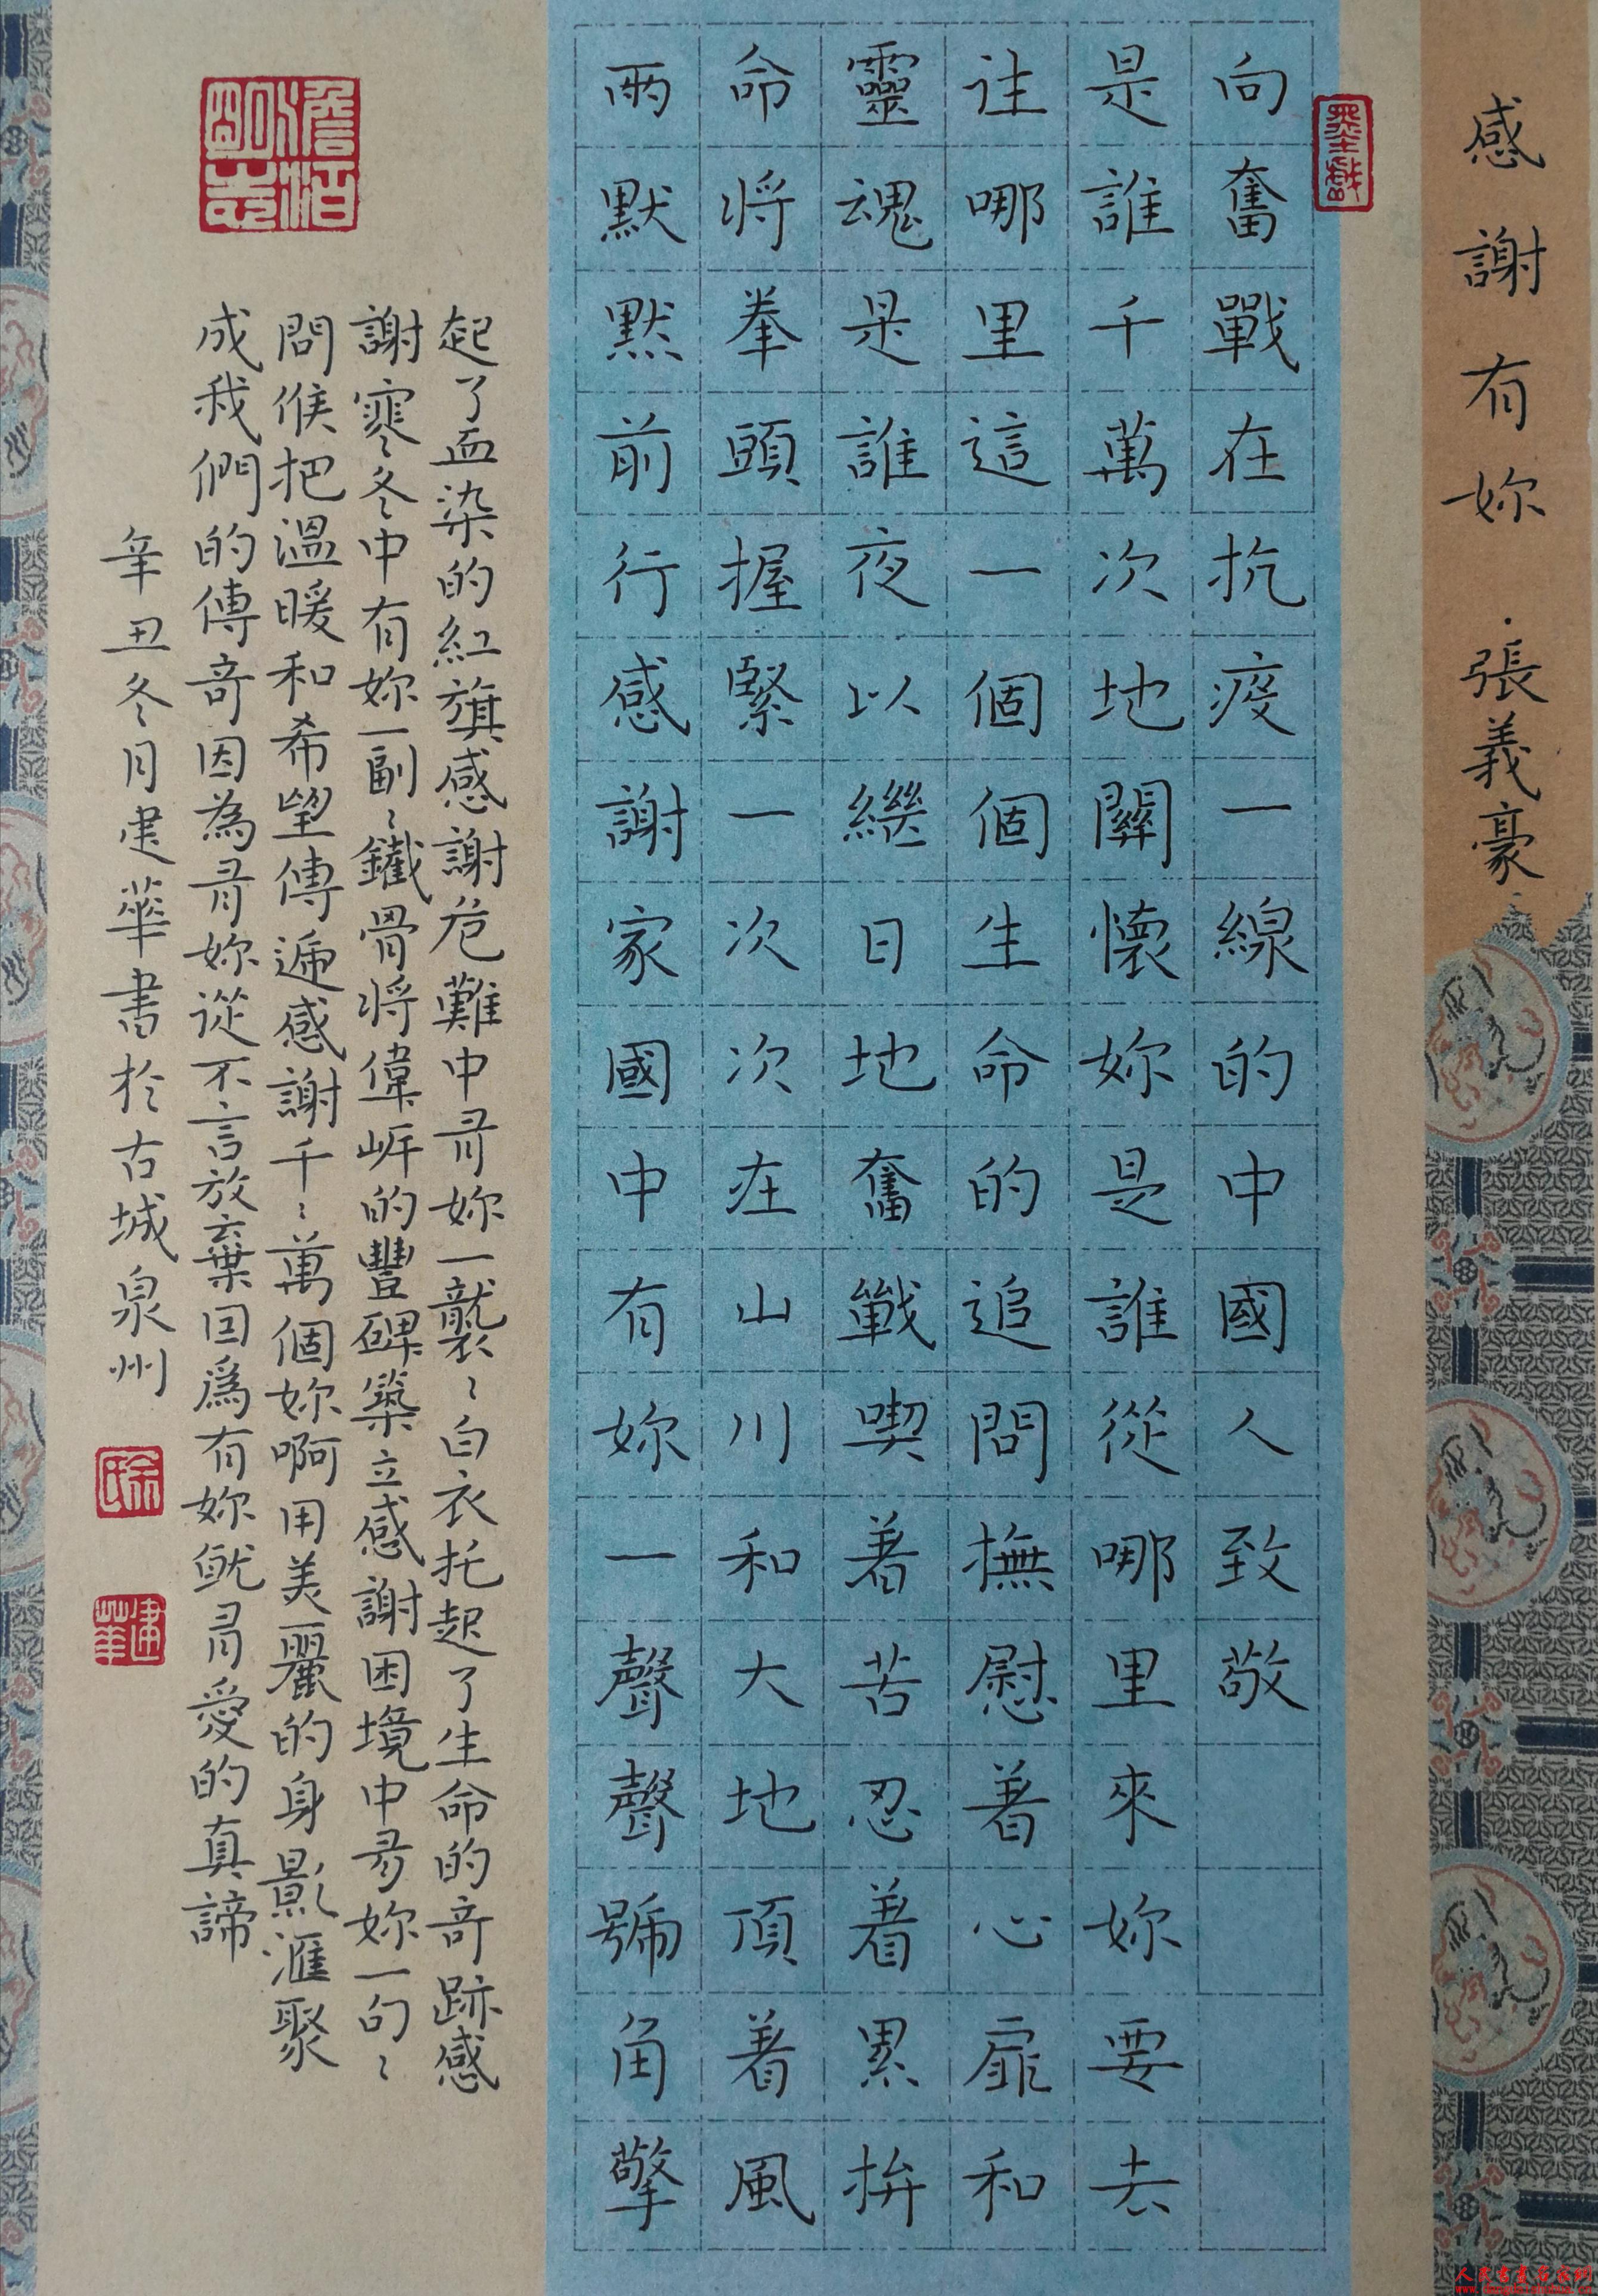 感謝有妳·張義豪
向奮戰在抗疫一線的中國人致敬
是誰千萬次地關懷妳是誰從哪里來妳要去
往哪里這一個個生命的追問撫慰着心扉和
靈魂是誰夜以繼日地奮戰喫着苦忍着累拚
命將拳頭握緊一次次在山川和大地頂着風
雨默默前行感謝家國中有妳一聲聲號角擎
起了血染的紅旗感謝危難中有妳一襲〻白衣托起了生命的奇跡感
謝寒冬中有妳一副〻鐵骨將偉岸的豐碑築立感謝困境中有妳一句〻
問候把溫暖和希望傳遞感謝千〻萬個妳啊用美麗的身影滙聚
成我們的傳奇因為有妳從不言放棄因爲有妳就有愛的真諦
辛丑冬月建華書於古城泉州
墨戲
澹泊明志
徐氏
建華